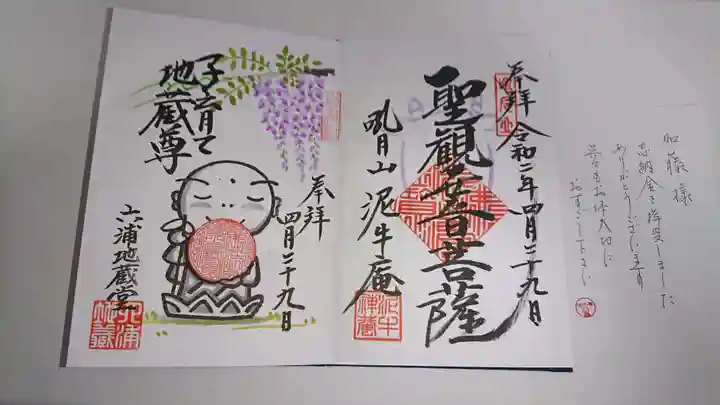 奉拝 令和二年四月二十九日
聖觀音菩薩
吼月山 泥牛庵
奉拝
四月二十九日
子育て
地蔵尊
六浦地蔵堂
六浦
地蔵
加藤様
志納金を拝受しました
ありがとうございます
おすごし下さい